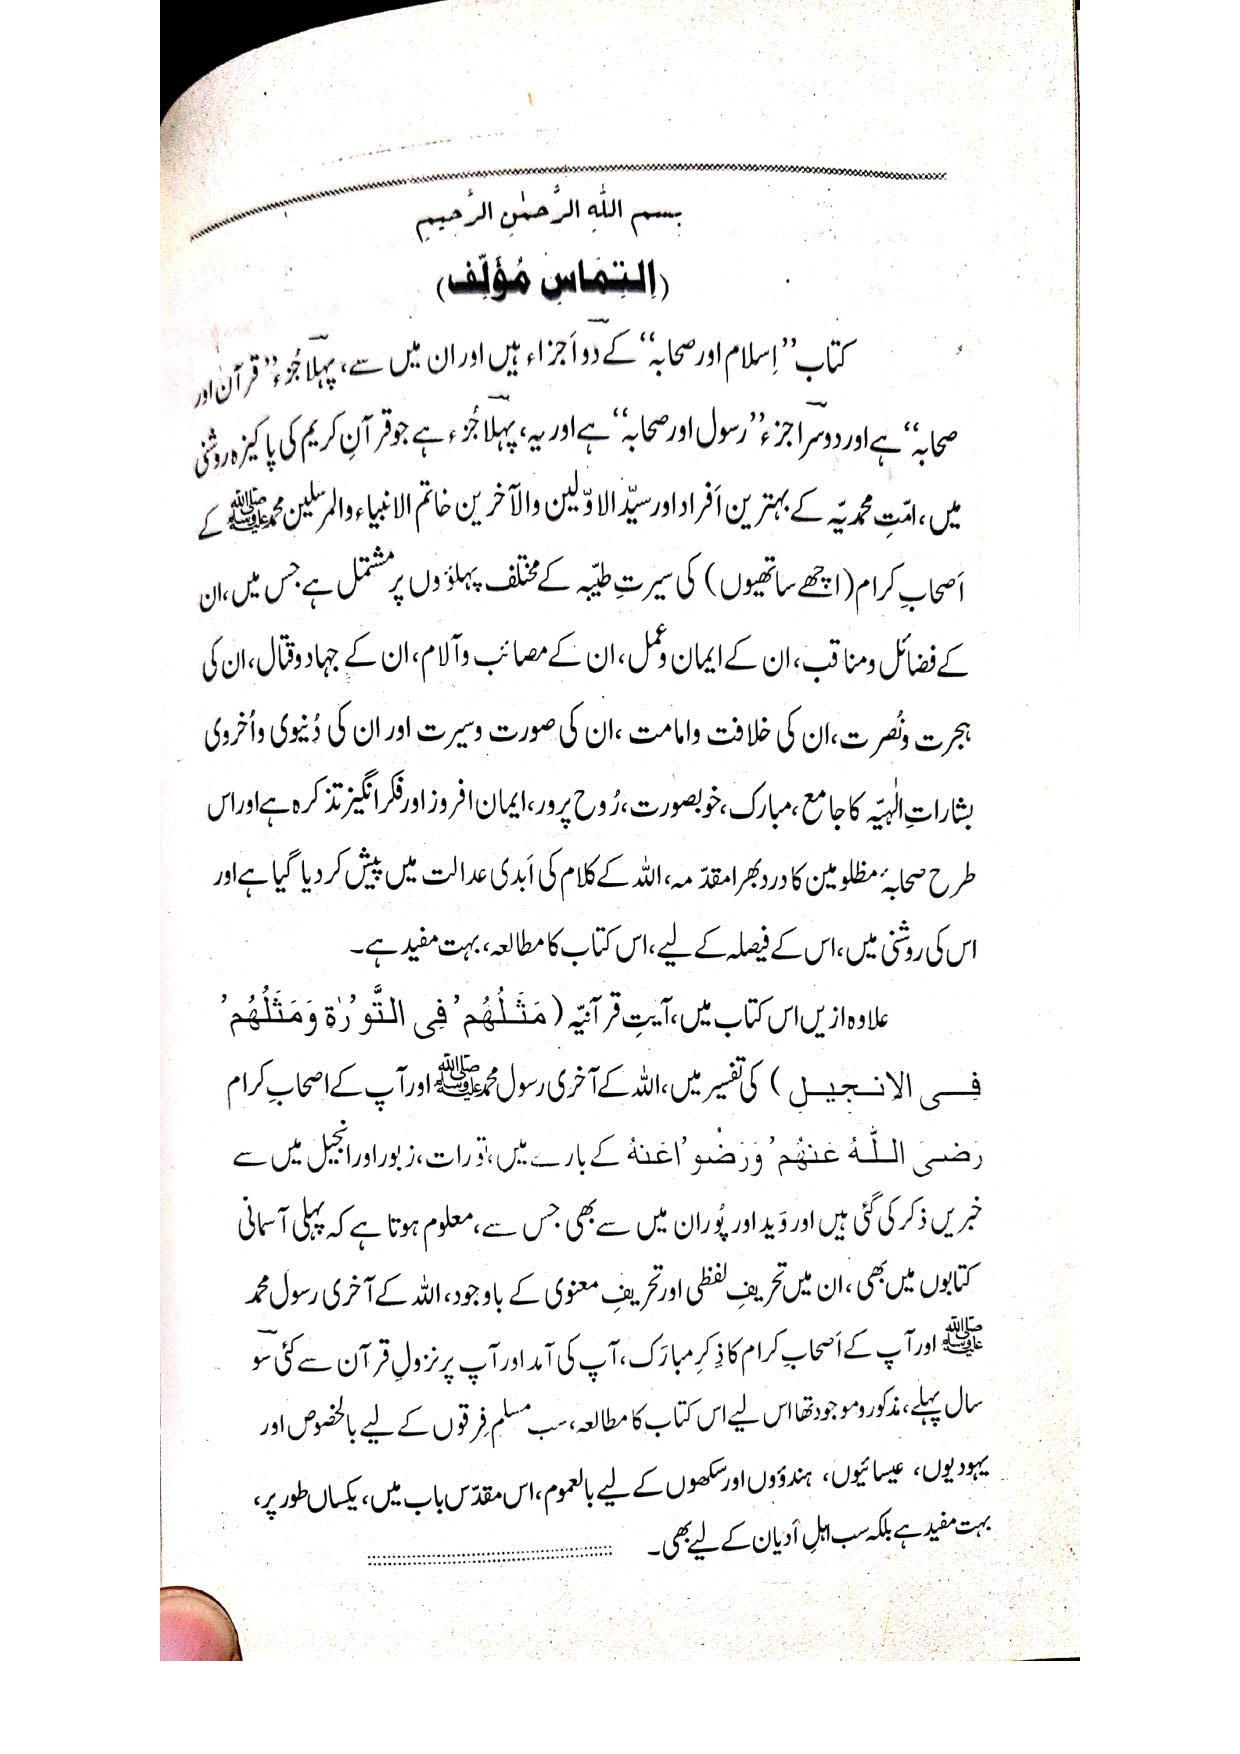 بسم اللهِ الرَّحمٰنِ الرَّحِيمِ
(اِلتِماسِ مُؤَلِّف)
کتاب ’’اِسلام اور صحابہ‘‘ کے دو اَجزاء ہیں اور ان میں سے، پہلا جُزء ’’قرآن اور
صحابہ‘‘ ہے اور دوسرا جزء ’’رسول اور صحابہ‘‘ ہے اور یہ، پہلا جُزء ہے جو قرآنِ کریم کی پاکیزہ روشنی
میں، امّتِ محمدیّہ کے بہترین اَفراد اور سیّد الاوّلین والآخرین خاتم الانبیاء والمرسلین محمد ﷺ کے
اَصحابِ کرام (اچھے ساتھیوں) کی سیرتِ طیّبہ کے مختلف پہلوؤں پر مشتمل ہے جس میں، ان
کے فضائل ومناقب، ان کے ایمان وعمل، ان کے مصائب وآلام، ان کے جہاد وقتال، ان کی
ہجرت ونُصرت، ان کی خلافت وامامت، ان کی صورت وسیرت اور ان کی دُنیوی واُخروی
بشاراتِ الٰہیّہ کا جامع، مبارک، خوبصورت، رُوح پرور، ایمان افروز اور فکر انگیز تذکرہ ہے اور اس
طرح صحابۂ مظلومین کا درد بھرا مقدّمہ، اللہ کے کلام کی اَبدی عدالت میں پیش کر دیا گیا ہے اور
اس کی روشنی میں، اس کے فیصلہ کے لیے، اس کتاب کا مطالعہ، بہت مفید ہے۔
علاوہ ازیں اس کتاب میں، آیتِ قرآنیّہ (مَثَلُهُمْ فِى التَّوْرٰةِ وَمَثَلُهُمْ
فِى الانجيل) کی تفسیر میں، اللہ کے آخری رسول محمد ﷺ اور آپ کے اصحابِ کرام
رَضیَ اللّٰهُ عَنهُمْ وَرَضُوْاعَنهُ کے بارے میں، تورات، زبور اور انجیل میں سے
خبریں ذکر کی گئی ہیں اور وَید اور پُوران میں سے بھی جس سے، معلوم ہوتا ہے کہ پہلی آسمانی
کتابوں میں بھی، ان میں تحریفِ لفظی اور تحریفِ معنوی کے باوجود، اللہ کے آخری رسول محمد
ﷺ اور آپ کے اَصحابِ کرام کا ذِکرِ مبارَک، آپ کی آمد اور آپ پر نزولِ قرآن سے کئی سَو
سال پہلے، مذکور وموجود تھا اس لیے اس کتاب کا مطالعہ، سب مسلم فِرقوں کے لیے بالخصوص اور
یہودیوں، عیسائیوں، ہندؤوں اور سکھوں کے لیے بالعموم، اس مقدّس باب میں، یکساں طور پر،
بہت مفید ہے بلکہ سب اہلِ اَدیان کے لیے بھی۔